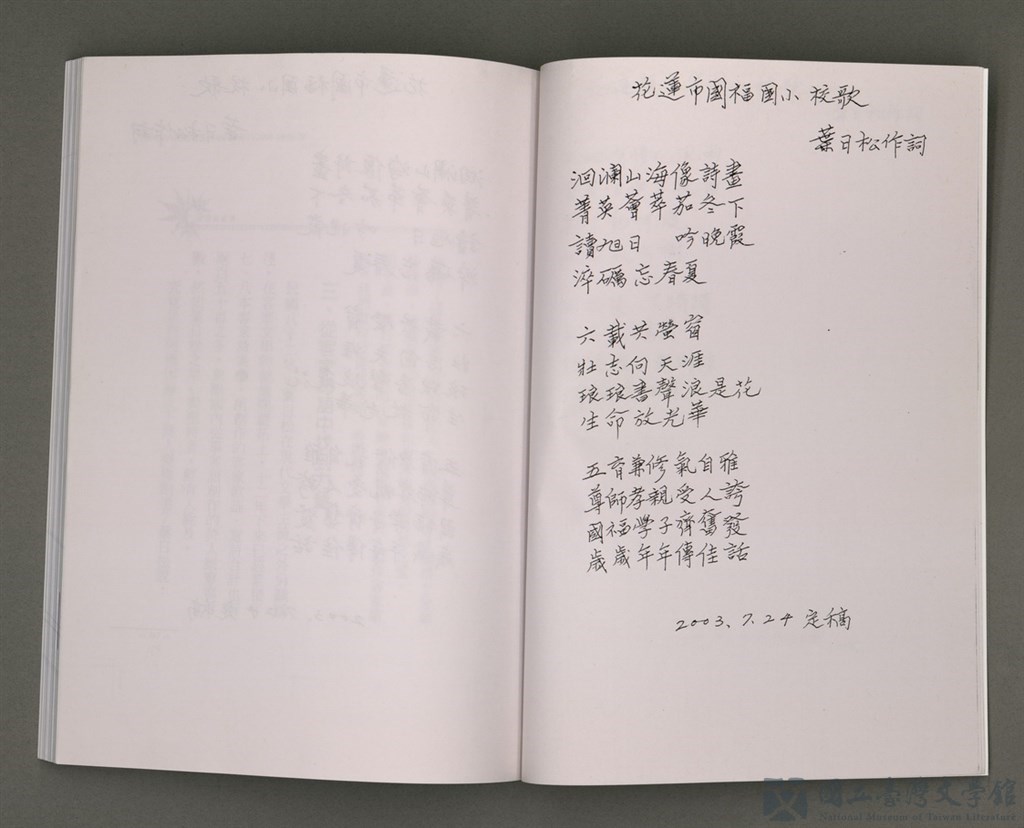 花蓮市國福國小 校歌
葉日松作詞
洄瀾山海像詩畫
菁英薈萃茄冬下
讀旭日 吟晚霞
淬礪忘春夏
六載共螢窗
壯志向天涯
琅琅書聲浪是花
生命放光華
五育兼修氣自雅
尊師孝親受人誇
國福學子齊奮發
歲歲年年傳佳話
2003.7.24 定稿
國立臺灣文學館
National Museum of Taiwan Literature